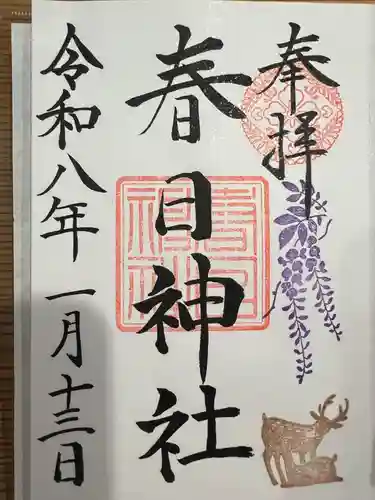 奉拝
春日神社
令和八年一月十三日
春日神社